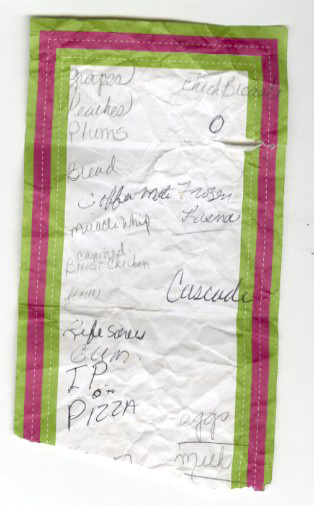 Grapes Chick Breast
Peaches
Plums
O
Bread
Coffee Mate Frozen
Miracle Whip
Canned
Breast Chicken
Cascade
Life Savers
GUM
I P
or
PIZZA
eggs
milk